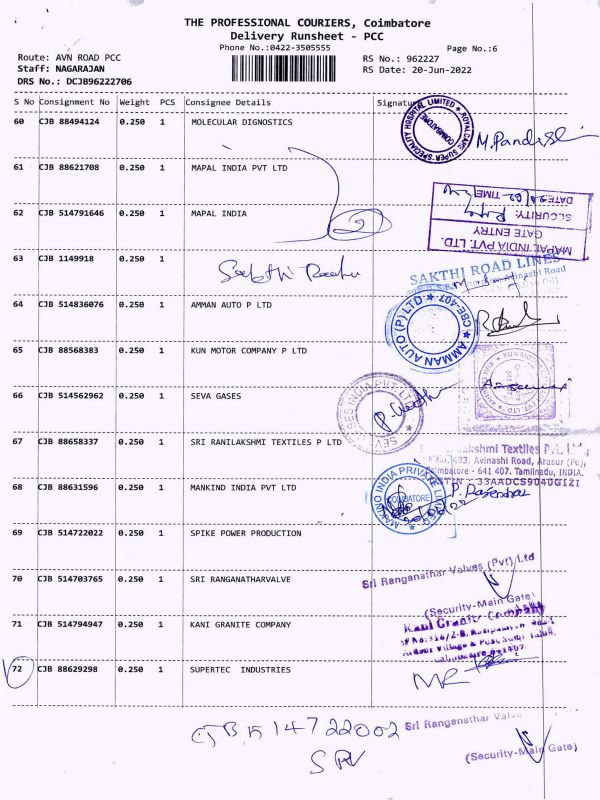 THE PROFESSIONAL COURIERS, Coimbatore
Delivery Runsheet - PCC
Phone No.:0422-3505555
Page No.:6
Route: AVN ROAD PCC
RS No.: 962227
Staff: NAGARAJAN
RS Date: 20-Jun-2022
DRS No.: DCJB96222706
S No Consignment No Weight PCS Consignee Details Signature
60 CJB 88494124 0.250 1 MOLECULAR DIGNOSTICS
ROYAL CARE SUPER SPECIALITY HOSPITAL LIMITED
COIMBATORE
61 CJB 88621708 0.250 1 MAPAL INDIA PVT LTD
62 CJB 514791646 0.250 1 MAPAL INDIA
MAPAL INDIA PVT. LTD.
GATE ENTRY
SECURITY:
DATE: TIME:
63 CJB 1149918 0.250 1
SAKTHI ROAD LINES
Avinashi Road
64 CJB 514836076 0.250 1 AMMAN AUTO P LTD
AMMAN AUTO (P) LTD ★ CBE-407 ★
65 CJB 88568383 0.250 1 KUN MOTOR COMPANY P LTD
66 CJB 514562962 0.250 1 SEVA GASES
67 CJB 88658337 0.250 1 SRI RANILAKSHMI TEXTILES P LTD
kshmi Textiles P. Ltd.,
493, Avinashi Road, Arasur (Po),
Coimbatore - 641 407. Tamilnadu, INDIA.
33AADCS9040G1Z1
68 CJB 88631596 0.250 1 MANKIND INDIA PVT LTD
MAKINO INDIA PRIVATE LIMITED
COIMBATORE
69 CJB 514722022 0.250 1 SPIKE POWER PRODUCTION
70 CJB 514703765 0.250 1 SRI RANGANATHARVALVE
Sri Ranganathar Valves (Pvt) Ltd
(Security-Main Gate)
71 CJB 514794947 0.250 1 KANI GRANITE COMPANY
Kani Granite Company
72 CJB 88629298 0.250 1 SUPERTEC INDUSTRIES
CJB 514722002
SRV
Sri Ranganathar Valve
(Security-Main Gate)